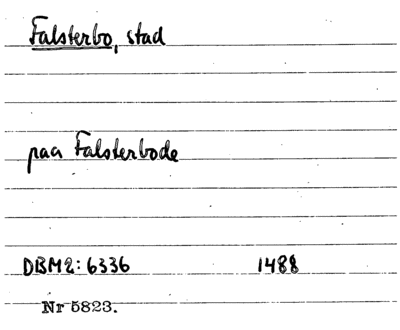 Falsterbo, stad
paa Falsterbode
DBM2: 6336 1488
Nr 5823.